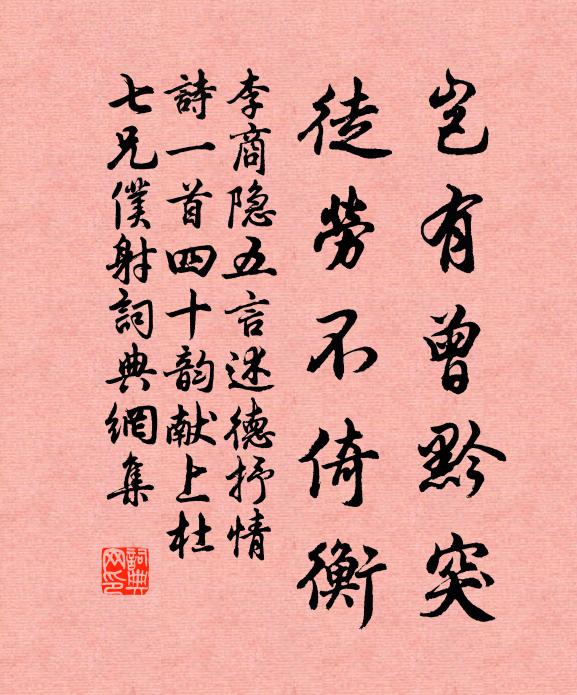 豈有曾黔突
徒勞不倚衡
李商隐五言述德抒情
詩一首四十韵献上杜
七兄僕射詞典網集
詞典网印